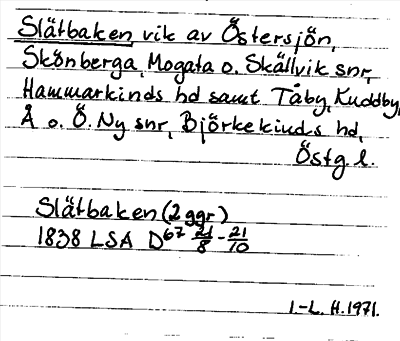 Slätbaken, vik av Östersjön,
Skönberga, Mogata o. Skällvik snr,
Hammarkinds hd samt Tåby, Kuddby,
Å o. Ö. Ny snr, Björkekinds hd,
Östg. l.
Slätbaken (2 ggr)
1838 LSA D67 21/8 - 21/10
I.-L. H. 1971.